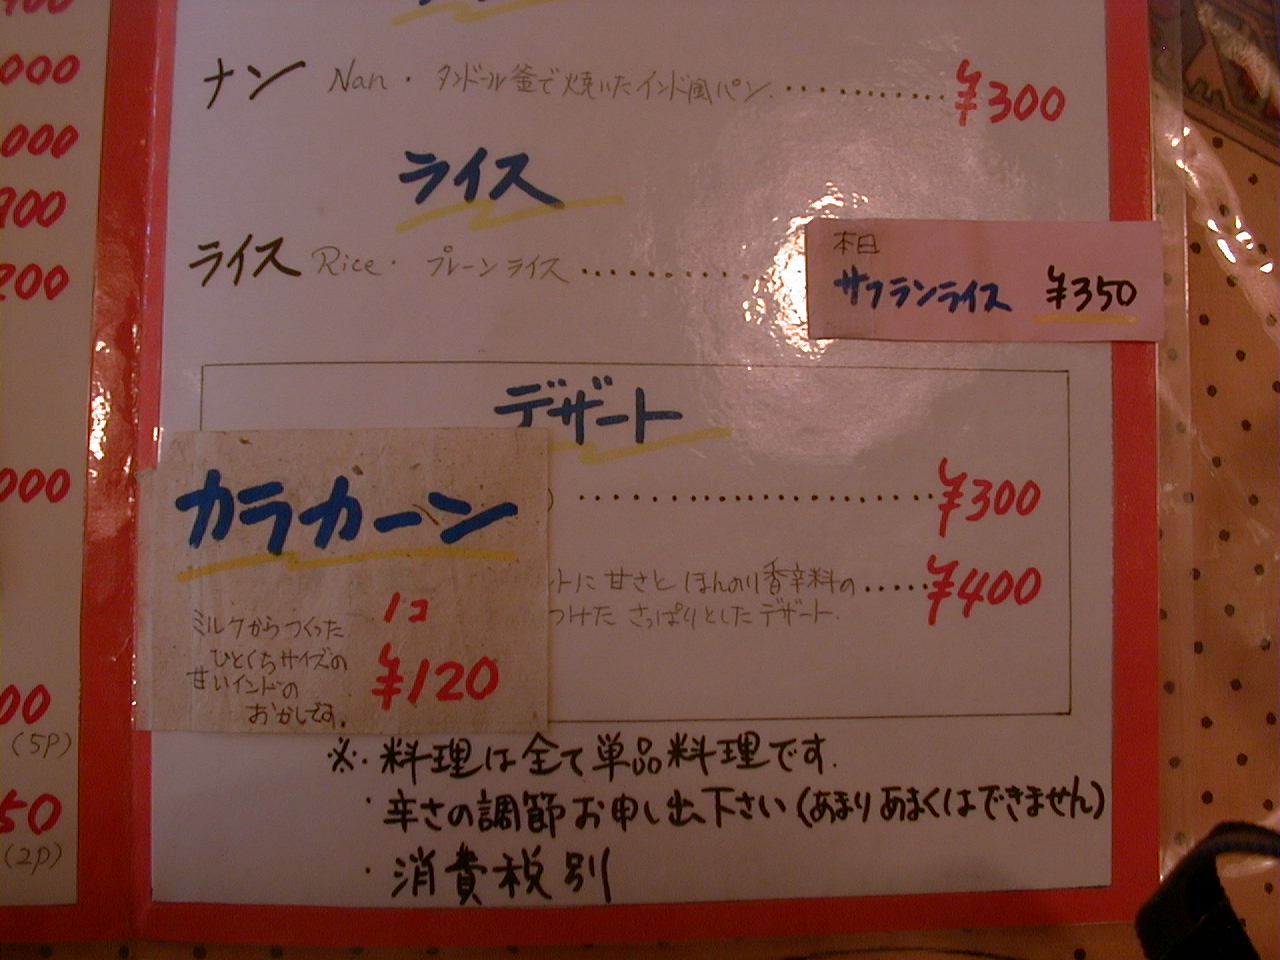 000
000
900
200
000
00
(5P)
50
(2P)
ナン Nan・タンドール釜で焼いたインド風パン ¥300
ライス
ライス Rice・プレーンライス
本日
サフランライス ¥350
デザート
¥300
トに甘さと ほんのり香辛料の ¥400
つけた さっぱりとしたデザート.
カラカーン
1コ
¥120
ミルクからつくった
ひとくちサイズの
甘いインドの
おかしです.
※・料理は全て単品料理です.
・辛さの調節お申し出下さい(あまりあまくはできません)
・消費税別